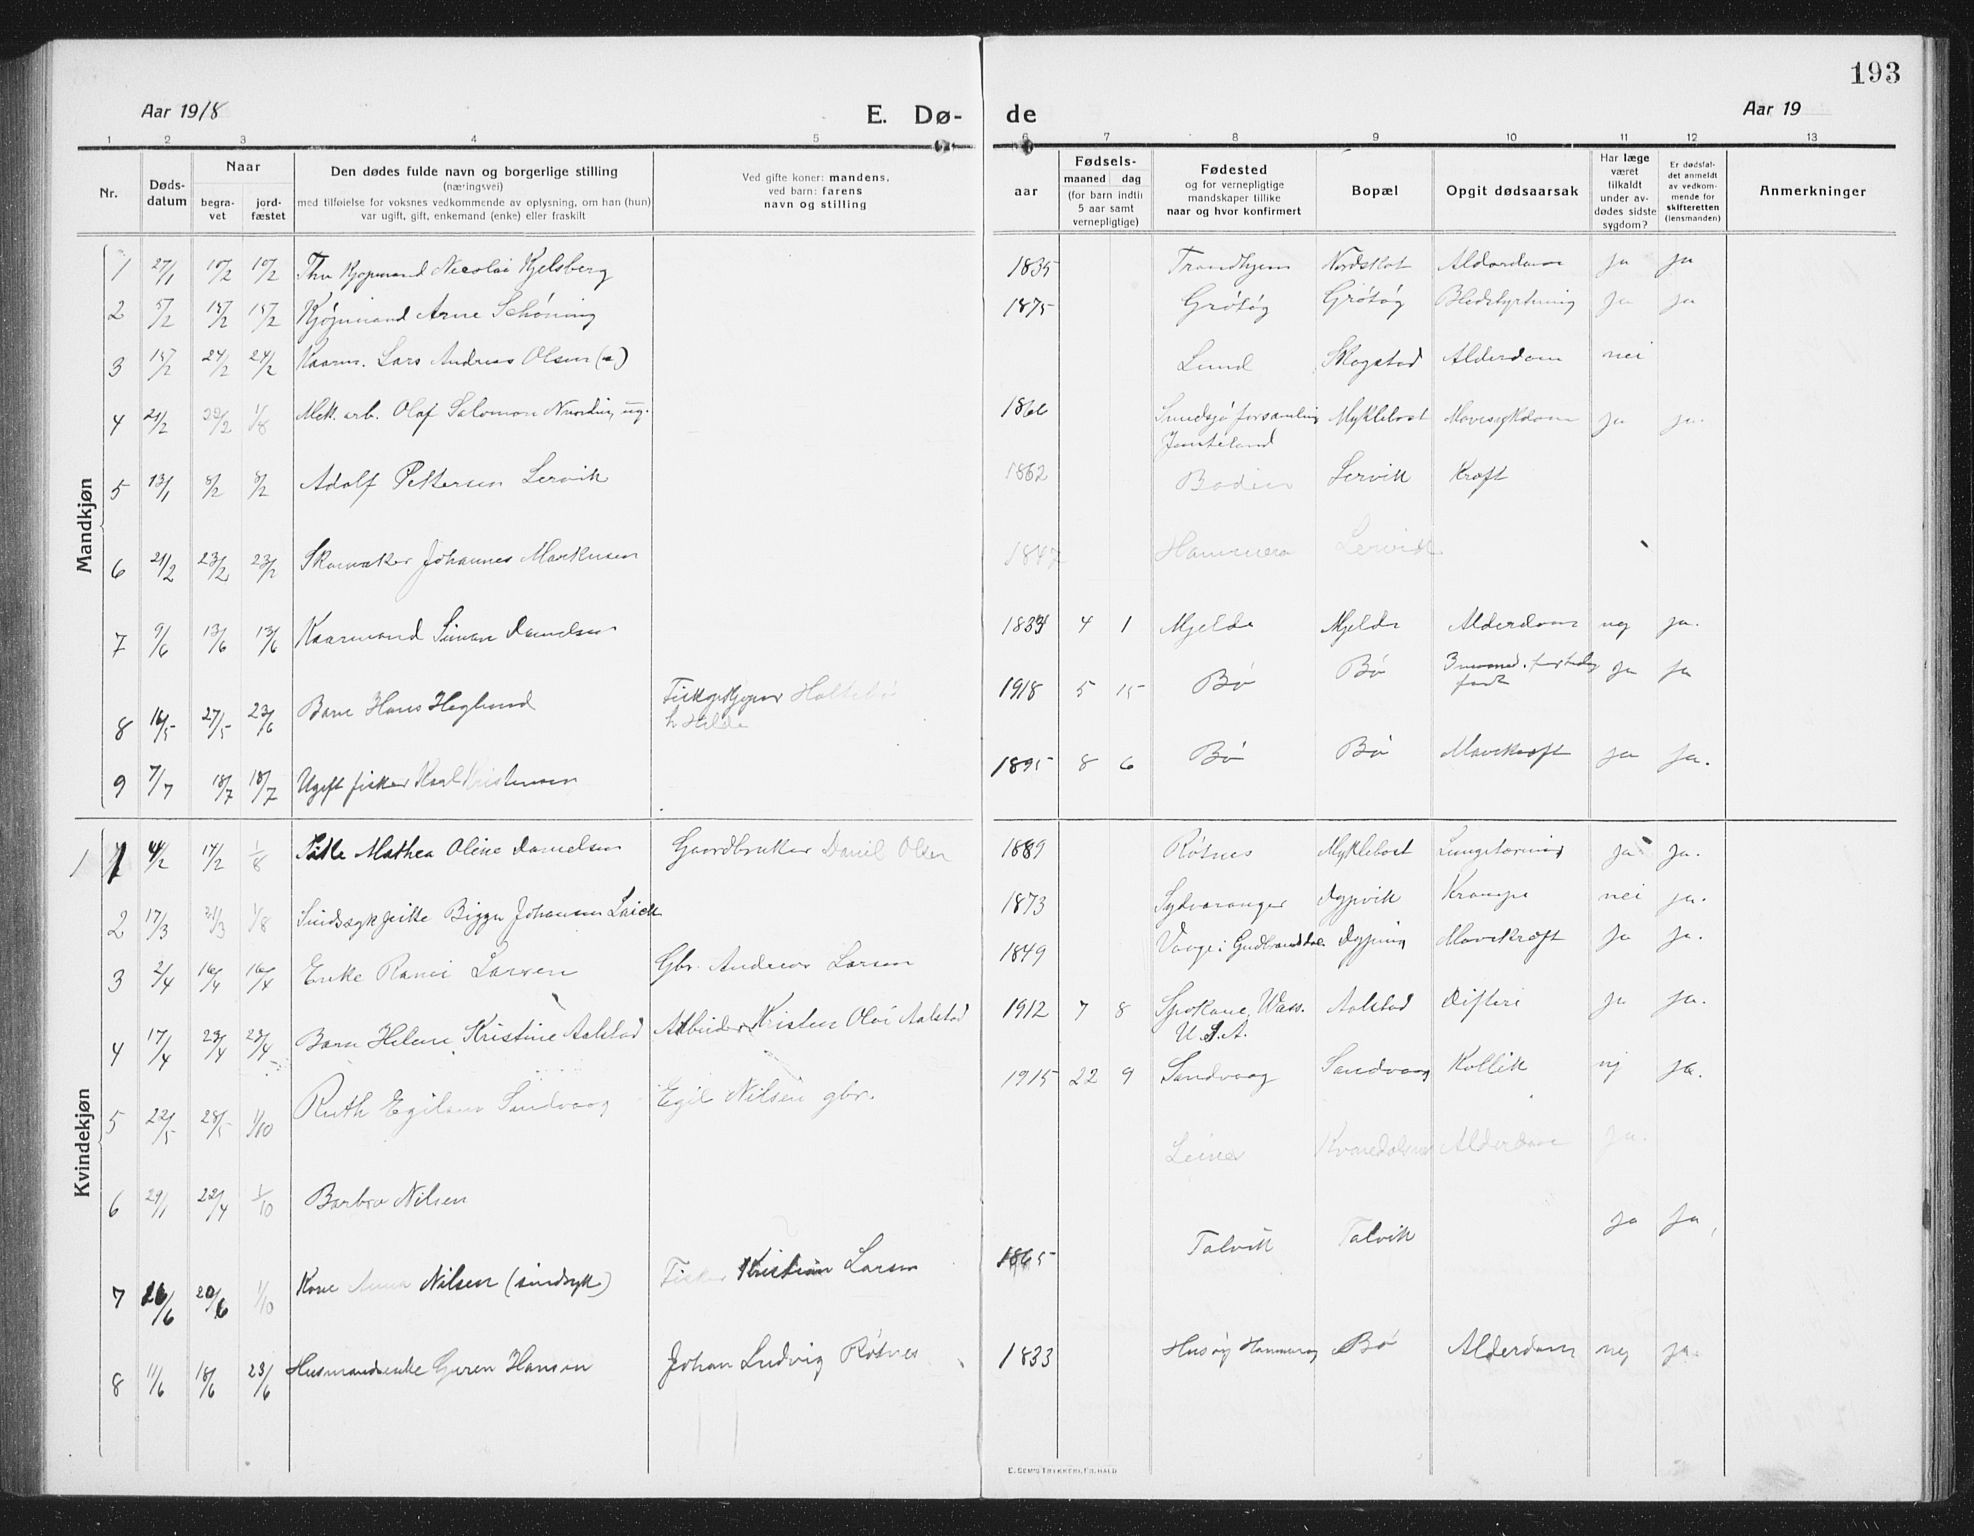 193
Aar 1918
E. Dø-
de
Aar 19
1 2 3 4 5 6 7 8 9 10 11 12 13
Nr.
Døds-
datum
Naar
begra-
vet
jord-
fæstet
Den dødes fulde navn og borgerlige stilling
(næringsvei)
med tilføielse for voksnes vedkommende av oplysning, om han (hun)
var ugift, gift, enkemand (enke) eller fraskilt
Ved gifte koner: mandens,
ved barn: farens
navn og stilling
aar
Fødsels-
maaned dag
(for barn indtil
5 aar samt
vernepligtige)
Fødested
og for vernepligtige
mandskaper tillike
naar og hvor konfirmert
Bopæl
Opgit dødsaarsak
Har læge
været
tilkaldt
under av-
dødes sidste
sygdom?
Er dødsfal-
det anmeldt
av vedkom-
mende for
skifteretten
(lensmanden)
Anmerkninger
Mandkjøn
1 27/1 10/2 10/2 Kjøpmand Nicolai Kjelsberg 1835 Trondhjem Nordskot Alderdom ja ja
2 5/2 15/2 15/2 Kjøpmand Arne Schöning 1875 Grøtøy Grøtøy ja ja
3 15/2 24/2 24/2 Kaarm. Lars Andreas Olsen Lund Skogstad Alderdom nei
4 21/2 1/8 Mek. arb. Olaf Salomon ug. 1866 forsamling Myklebost Mavesykdom ja ja.
Jemteland
5 13/1 8/2 8/2 Adolf Pettersen Lervik 1862 Bodin Lervik Kræft
6 21/2 23/2 23/2 Skomaker Johannes Markussen 1847 Hammerø Lervik
7 9/6 13/6 13/6 Kaarmand Simon Danielsen 1834 4 1 Mjelde Mjelde Alderdom nej ja.
8 16/5 27/5 23/6 Barn Hans Heglund 1918 5 15 Bø Bø 3 maaned. for tidlig ja ja
født
9 7/7 18/7 18/7 Ugift fisker Karl Kristensen 1895 8 6 Bø Bø Mavekræft ja ja.
Kvindekjøn
1 4/2 17/2 1/8 Mathea Oline Danielsen Gaardbruker Daniel Olsen 1889 Røtnes Myklebost Lungetæring ja ja.
2 17/3 21/3 1/8 Johansen 1873 Sydvaranger Dypvik Krampe nei ja.
3 2/4 16/4 16/4 Enke Larsen Gbr. Andreas Larsen 1849 Vaage i Gudbrandsdal Mavekræft ja ja.
4 17/4 23/4 23/4 Barn Helene Kristine Aalstad Arbeider Kristen Aalstad 1912 7 8 Spokane, Wass. Aalstad Difteri ja ja.
U.S.A.
5 22/5 28/5 1/10 Ruth Egilsen Sandvaag Egil Nilsen gbr. 1915 22 9 Sandvaag Sandvaag Kollik nj ja.
6 29/1 22/4 1/10 Barbro Nilsen Leines Alderdom ja.
7 26/6 20/6 1/10 Kone Anna Nilsen (sindsyk) Fisker Kristian Larsen 1865 Talvik Talvik ja ja,
8 11/6 18/6 23/6 Husmandsenke Guren Hansen Johan Ludvig Røtnes 1833 Husøy Hammerøy Bø Alderdom nej ja.
E. SEM'S TRYKKERI, FR.HALD